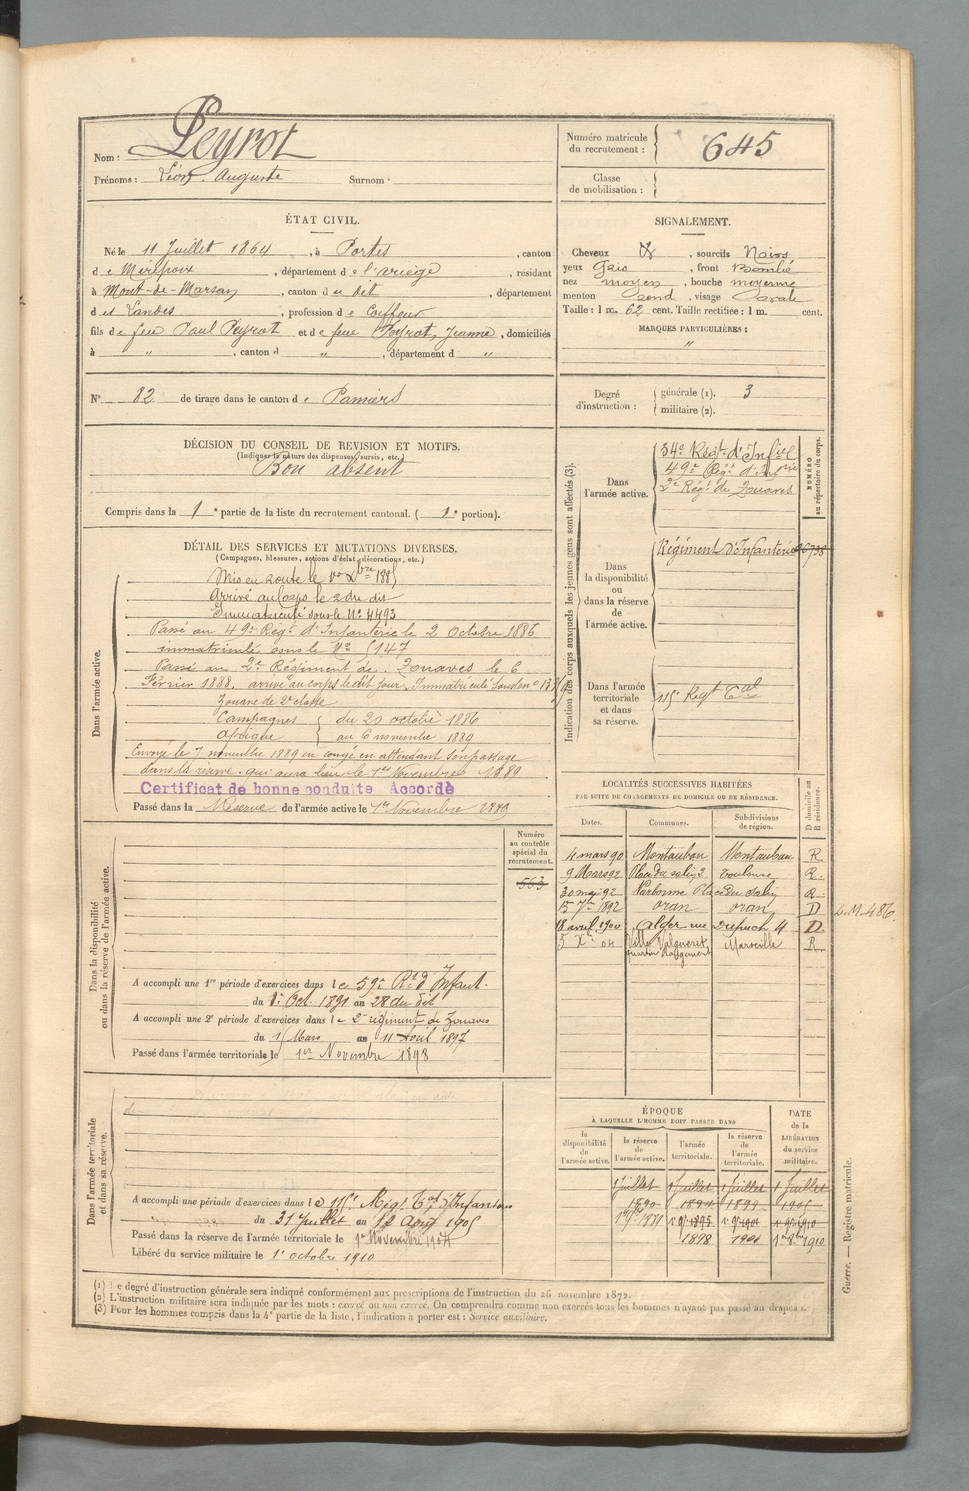 Nom : Peyrot
Prénoms : Léon Auguste Surnom :
Numéro matricule du recrutement : 645
Classe de mobilisation :
ÉTAT CIVIL.
Né le 11 Juillet 1864, à Portes, canton
de Mirepoix, département de l'ariège, résidant
à Mont-de-Marsan, canton du dit, département
des Landes, profession de Coiffeur
fils de feu Paul Peyrot et de feue Peyrot, Jeanne, domiciliés
à " , canton d " , département d "
SIGNALEMENT.
Cheveux & , sourcils Noirs
yeux Gris , front Bombé
nez moyen , bouche moyenne
menton rond , visage ovale
Taille : 1 m. 62 cent. Taille rectifiée : 1 m. cent.
MARQUES PARTICULIÈRES :
"
N° 82 de tirage dans le canton de Pamiers
Degré d'instruction : générale (1). 3
militaire (2).
DÉCISION DU CONSEIL DE REVISION ET MOTIFS.
(Indiquer la nature des dispenses, sursis, etc.)
Bon absent
Compris dans la 1e partie de la liste du recrutement cantonal. ( 1e portion).
DÉTAIL DES SERVICES ET MUTATIONS DIVERSES.
(Campagnes, blessures, actions d'éclat, décorations, etc.)
Dans l'armée active.
Mis en route le 1er Xbre 1885
Arrivé au Corps le 2 du dit
Immatriculé sous le N° 4493
Passé au 49e Régt d'Infanterie le 2 Octobre 1886
immatriculé sous le N° 5147
Passé au 2e Régiment de Zouaves le 6
Février 1888, arrivé au corps le dit jour, Immatriculé sous le n°
Zouave de 2e classe
Campagnes du 20 octobre 1886
Afrique au 6 novembre 1889
Envoyé le 7 novembre 1889 en congé en attendant son passage
dans la réserve qui aura lieu le 1er Novembre 1889
Certificat de bonne conduite Accordé
Passé dans la Réserve de l'armée active le 1er Novembre 1889
Indication des corps auxquels les jeunes gens sont affectés (3).
NUMÉRO au répertoire du corps.
Dans l'armée active.
34e Régt d'Infie
49e Régt d'Infrie
2e Régt de Zouaves
Dans la disponibilité ou dans la réserve de l'armée active.
Régiment d'Infanterie
Dans l'armée territoriale et dans sa réserve.
115e Regt Tal
Dans la disponibilité ou dans la réserve de l'armée active.
Numéro au contrôle spécial du recrutement.
563
A accompli une 1re période d'exercices dans le 59e Rt d'Infant.
du 1er Oct. 1891 au 28 du dit
A accompli une 2e période d'exercices dans le 2e régiment de Zouaves
du 15 Mars au 11 Avril 1897
Passé dans l'armée territoriale le 1er Novembre 1898
LOCALITÉS SUCCESSIVES HABITÉES
PAR SUITE DE CHANGEMENTS DE DOMICILE OU DE RÉSIDENCE.
Dates. Communes. Subdivisions de région. D domicile ou R résidence.
4 mars 90 Montauban Montauban R.
9 Mars 92 Place du salin 2 Toulouse R.
30 mai 92 Narbonne Place du Salin R
15 7bre 1892 oran oran D L.M.486.
18 avril 1900 Alger rue Dupuch 4 D.
5 Xbre 04 Villa Valgueret Marseille R
Dans l'armée territoriale et dans sa réserve.
A accompli une période d'exercices dans le 115e Régt Tal d'Infanterie
du 31 Juillet au 12 Août 1905
Passé dans la réserve de l'armée territoriale le 1er Novembre 1904
Libéré du service militaire le 1er octobre 1910
ÉPOQUE À LAQUELLE L'HOMME DOIT PASSER DANS
la disponibilité de l'armée active. la réserve de l'armée active. l'armée territoriale. la réserve de l'armée territoriale. DATE de la LIBÉRATION du service militaire.
1 Juillet 1 Juillet 1 Juillet 1 Juillet
1890 1894 1899 1905
1898 1904 1910
(1) Le degré d'instruction générale sera indiqué conformément aux prescriptions de l'instruction du 26 novembre 1872.
(2) L'instruction militaire sera indiquée par les mots : exercé ou non exercé. On comprendra comme non exercés tous les hommes n'ayant pas passé au drapeau.
(3) Pour les hommes compris dans la 4e partie de la liste, l'indication à porter est : Service auxiliaire.
Guerre. — Registre matricule.